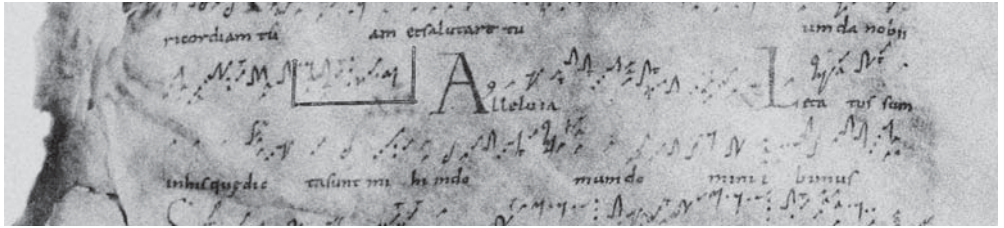 ricordiam tū am et salutare tu um da nobii
Alleluia Leta tus sum
inhis que dic ta sunt mi hi indo mum do mi ni i bimus